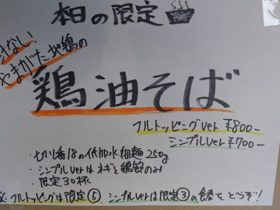 本日の限定
ない
やまがた地鶏の
鶏油そば
フルトッピングver. ¥800-
シンプルver ¥700-
・切り番18の低加水細麺250g
・シンプルverはネギと鶏節のみ
・限定30杯
フルトッピングは限定⑤ シンプルverは限定③の食券をどうぞ!!